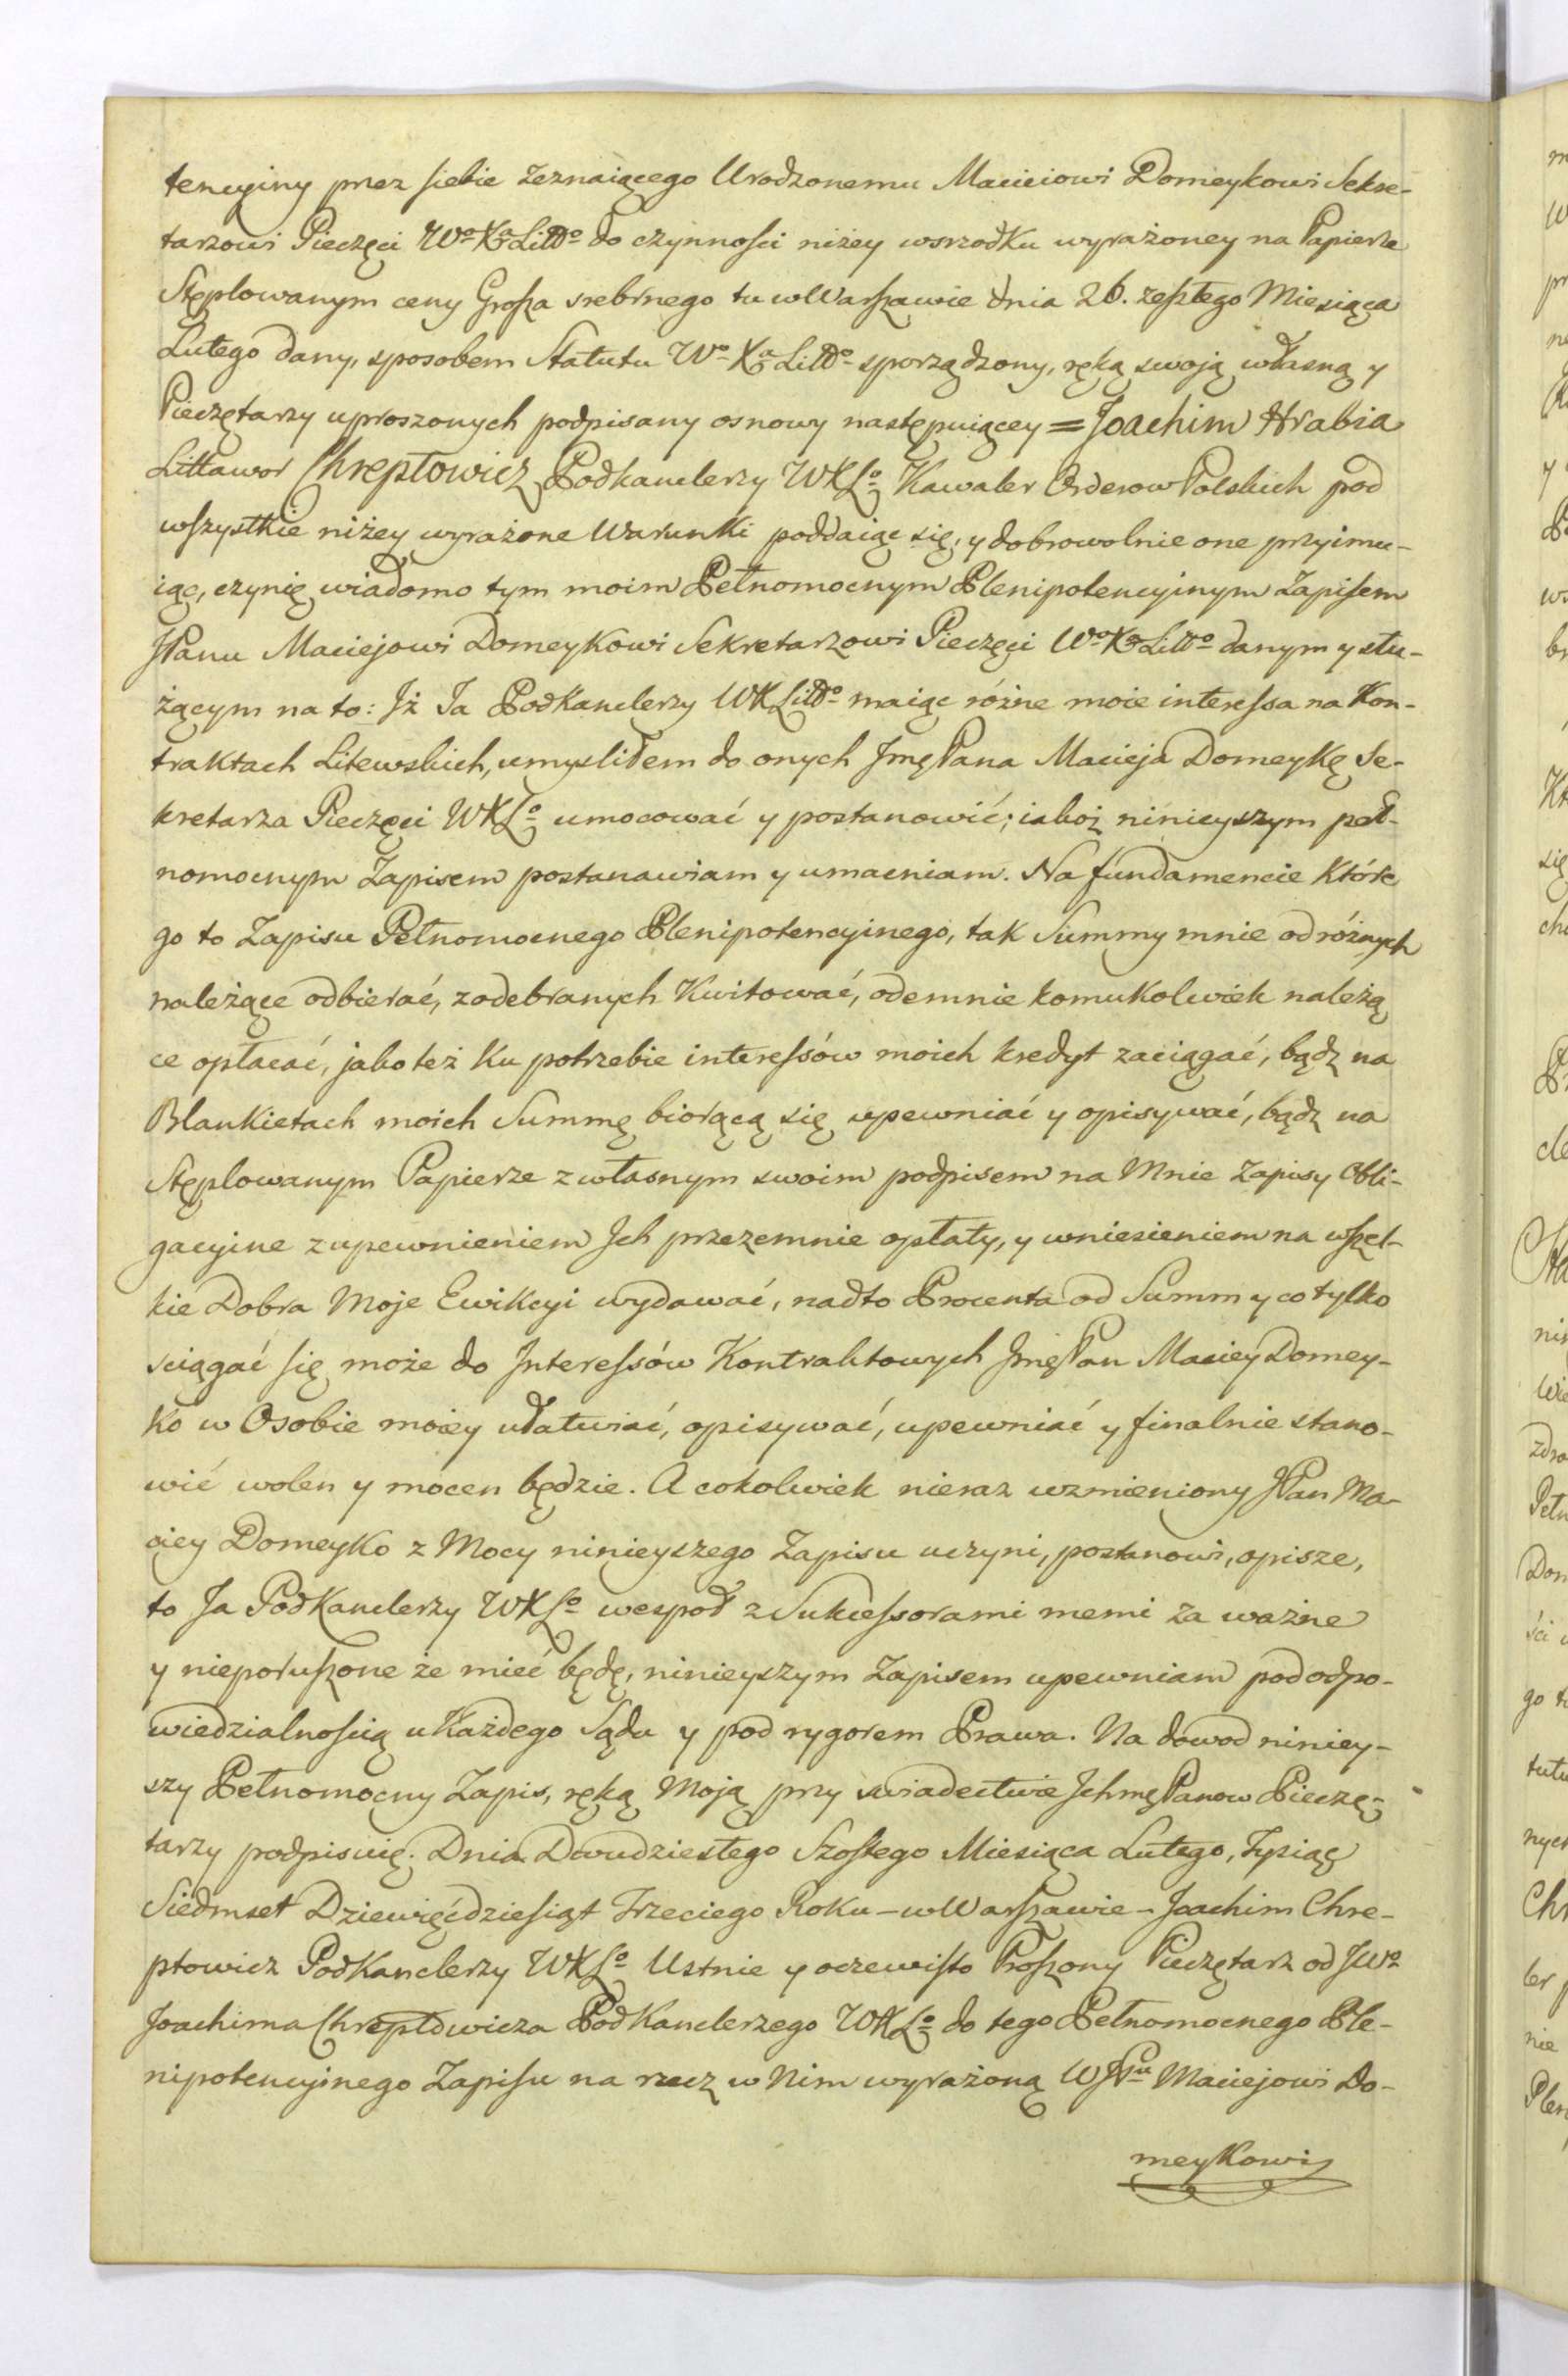 tencyiny przez siebie zeznaiącego Urodzonemu Maciciowi Domeykowi Sekre-
tarzowi Pieczęci Wo Xa Littdo do czynnosci niżey wsrzodku wyrażoney na Papierze
Stęplowanym ceny Grosza srebrnego tu w Warszawie dnia 26. zeszłego Miesiąca
Lutego dany, sposobem Statutu Wo Xa Littdo sporządzony, ręką swoją własną y
Pieczętarzy uproszonych podpisany osnowy następuiącey = Joachim Hrabia
Littawor Chreptowicz Podkanclerzy WXLo Kawaler Orderow Polskich pod
wszystkie niżey wyrażone Warunki poddaiąc się, y dobrowolnie one przyimu-
iąc, czynię wiadomo tym moim Pełnomocnym Plenipotencyinym Zapisem
JPanu Maciejowi Domeykowi Sekretarzowi Pieczęci Wo Xa Litto danym y słu-
żącym na to: Jż Ja Podkanclerzy WXLittdo maiąc różne moie interessa na Kon-
traktach Litewskich, umyslilem do onych JmęPana Macieja Domeykę Se-
kretarza Pieczęci WXLo umocować y postanowić; iakoż ninieyszym peł-
nomocnym Zapisem postanawiam y umacniam. Na fundamencie Które
go to Zapisu Pełnomocnego Plenipotencyinego, tak Summy mnie od różnych
należące odbierać, z odebranych Kwitować, odemnie komukolwiek należą
ce opłacać, jako też ku potrzebie interessów moich kredyt zaciągać, bądz na
Blankietach moich Summę biorącą się upewniać y opisywać, bądz na
Stęplowanym Papierze z własnym swoim podpisem na Mnie Zapisy Obli-
gacyine z upewnieniem Jch przezemnie opłaty, y wniesieniem na wszel-
kie Dobra Moje Ewikcyi wydawać, nadto Procenta od Summ y co tylko
sciągać się może do Interessów Kontraktowych JmęPan Maciey Domey-
ko w Osobie moiey ułatwiać, opisywać, upewniać y finalnie stano-
wić wolen y mocen będzie. A cokolwiek nieraz wzmieniony JPan Ma-
ciey Domeyko z Mocy ninieyszego Zapisu uczyni, postanowi, opisze,
to Ja Podkanclerzy WXLo wespoł z Sukcessorami memi za ważne
y nieporuszone że mieć będę, ninieyszym Zapisem upewniam pod odpo-
wiedzialnoscią u Każdego Sądu y pod rygorem Prawa. Na dowod niniey-
szy Pełnomocny Zapis, ręką Moją przy swiadectwie JchmęPanow Pieczę-
tarzy podpisuię. Dnia Dwudziestego Szostego Miesiąca Lutego, Tysiąc
Siedmset Dziewięćdziesiąt Trzeciego Roku – w Warszawie – Joachim Chre-
ptowicz Podkanclerzy WXLo Ustnie y oczewisto Proszony Pieczętarz od JWo
Joachima Chreptowicza Podkanclerzego WXLo do tego Pełnomocnego Ple-
nipotencyinego Zapisu na rzecz w Nim wyrażoną WJPu Maciejowi Do-
meykowi